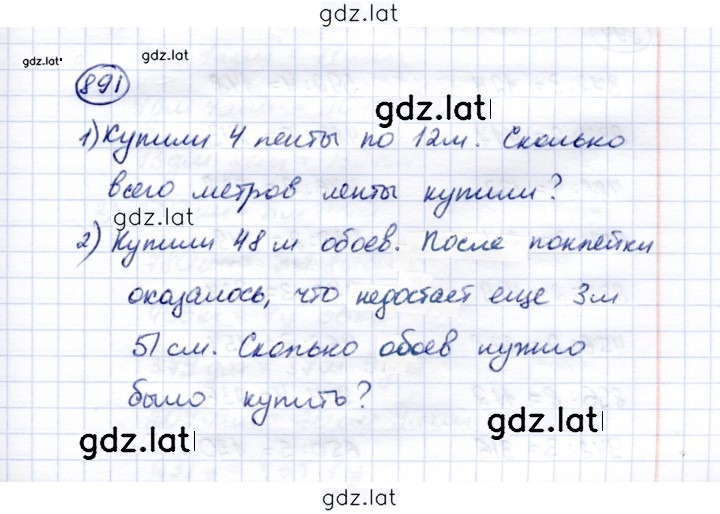 gdz.lat
gdz.lat
gdz.lat
891
gdz.lat
1) Купили 4 ленты по 12 м. Сколько
всего метров ленты купили?
gdz.lat
2) Купили 48 м обоев. После поклейки
оказалось, что недостает еще 3 м
51 см. Сколько обоев нужно
было купить?
gdz.lat
gdz.lat
gdz.lat